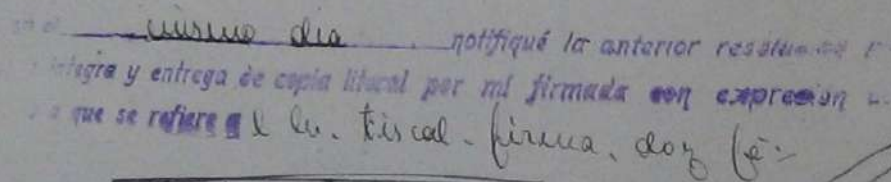 en el mismo dia notifiqué la anterior resolución
integra y entrega de copia literal por mi firmada con expresion
que se refiere al M. Fiscal. firma, doy fé: